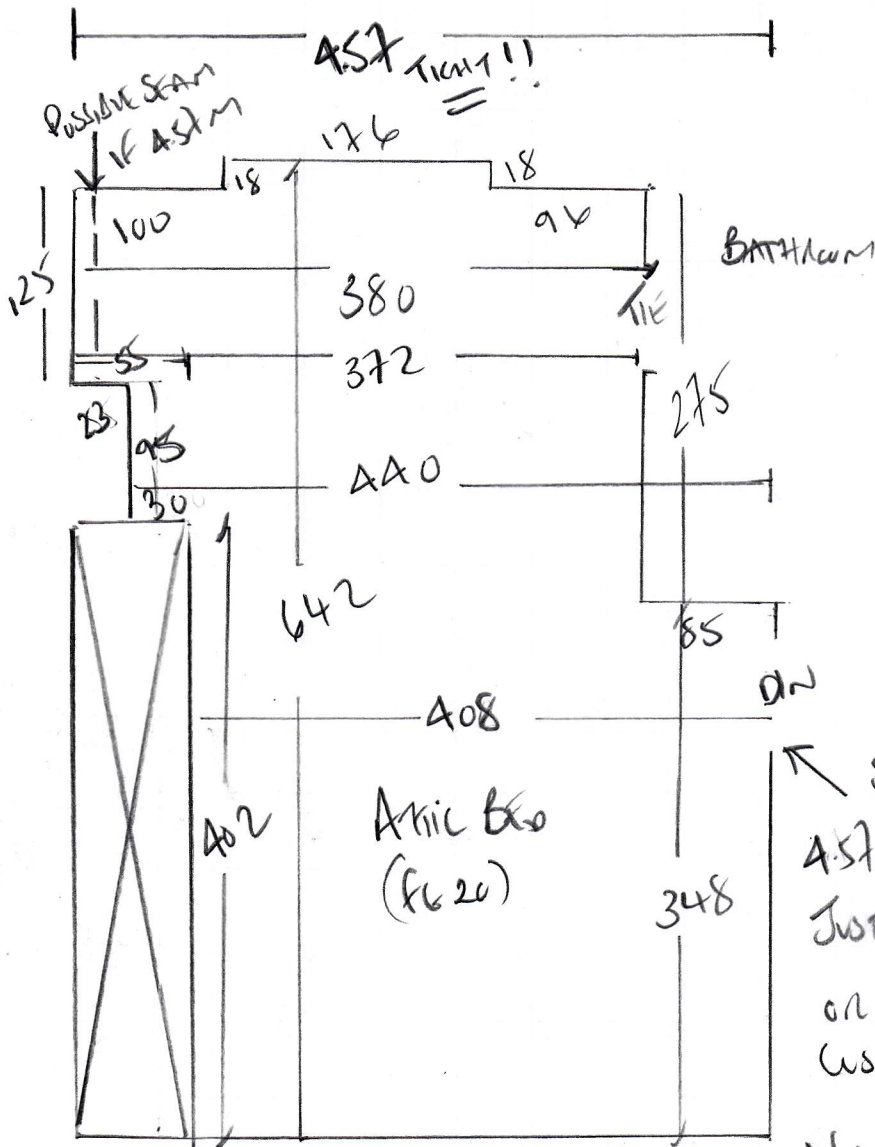 4.57 TIGHT!!
POSSIBLE SEAM
IF 4.57M
176
18
18
100
94
125
380
BATHROOM
55
372
275
23
95
440
30
642
85
DIN
408
402
ATTIC BED
4.57
348
JUST
OR